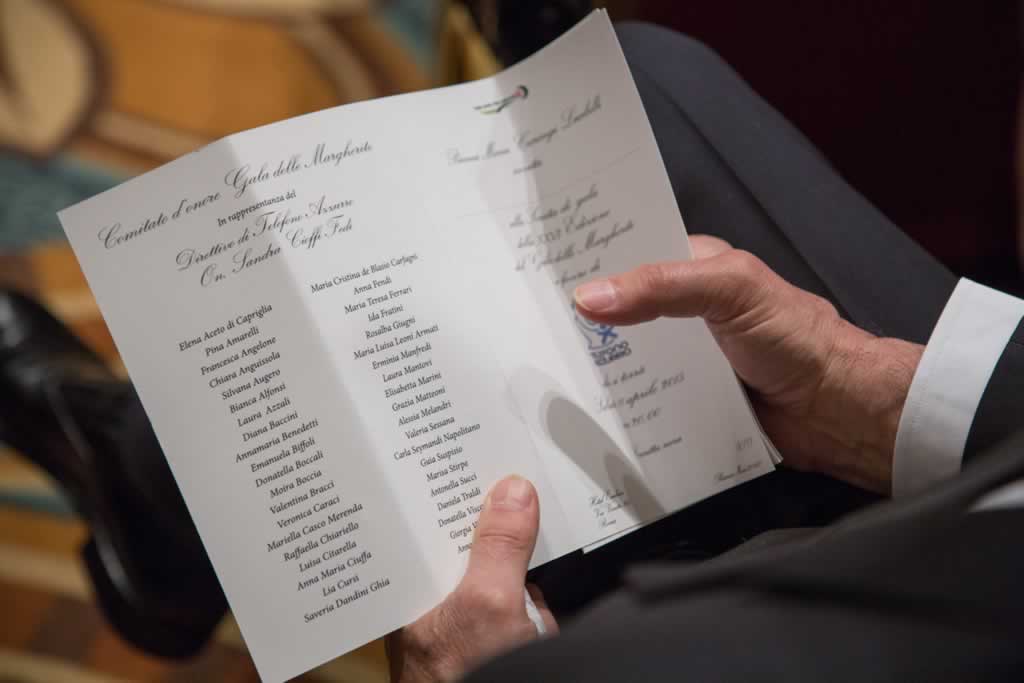 Comitato d'onore Gala delle Margherite
In rappresentanza del
Direttivo di Telefono Azzurro
On. Sandra Cioffi Fedi
Elena Aceto di Capriglia
Pina Amarelli
Francesca Angelone
Chiara Anguissola
Silvana Augero
Bianca Alfonsi
Laura Azzali
Diana Baccini
Annamaria Benedetti
Emanuela Biffoli
Donatella Boccali
Moira Boccia
Valentina Bracci
Veronica Caraci
Mariella Casco Merenda
Raffaella Chiariello
Luisa Citarella
Anna Maria Ciuffa
Lia Cursi
Saveria Dandini Ghia
Maria Cristina de Blasio Carfagni
Anna Fendi
Maria Teresa Ferrari
Ida Fratini
Rosalba Giugni
Maria Luisa Leoni Armati
Erminia Manfredi
Laura Mantovi
Elisabetta Marini
Grazia Matteoni
Alessia Melandri
Valeria Sessana
Carla Seymandi Napolitano
Gaia Suspisio
Marisa Stirpe
Antonella Succi
Daniela Traldi
Donatella
Giorgia
Donna Maria
invita
alla Serata di gala
della XXVI Edizione
del Gala delle Margherite
di
aprile 2015
Hotel
Via
Roma